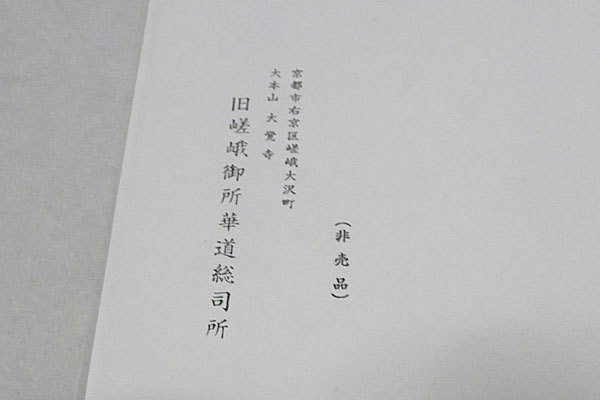 (非売品)
京都市右京区嵯峨大沢町
大本山 大覚寺
旧嵯峨御所華道総司所